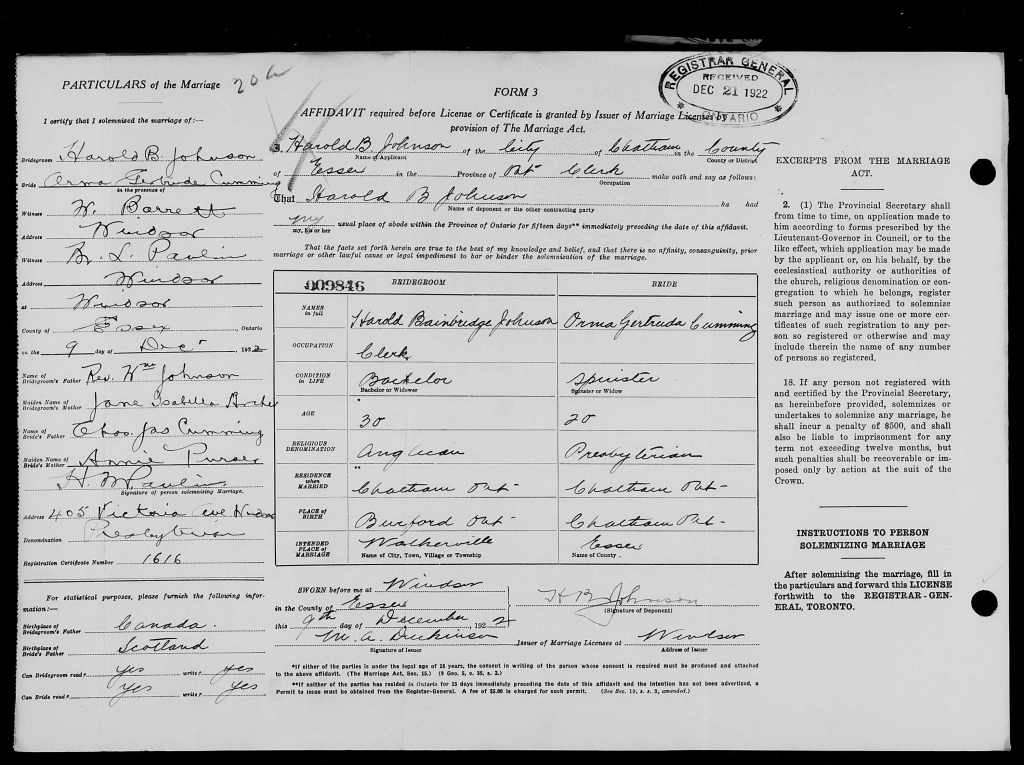 PARTICULARS of the Marriage
I certify that I solemnized the marriage of:—
Bridegroom Harold B. Johnson
Bride Orma Gertrude Cumming
in the presence of
Witness W. Barrett
Address Windsor
Witness L. Paulin
Address Windsor
at Windsor
County of Essex, Ontario
on the 9 day of Dec 1922
Name of Bridegroom's Father Rev. Wm Johnson
Maiden Name of Bridegroom's Mother Jane Isabella
Name of Bride's Father Thos. Jas Cumming
Maiden Name of Bride's Mother Annie Purser
H. M. Paulin
Signature of person solemnizing Marriage.
Address 405 Victoria Ave Windsor
Denomination Presbyterian
Registration Certificate Number 1616
For statistical purposes, please furnish the following information:—
Birthplace of Bridegroom's Father Canada.
Birthplace of Bride's Father Scotland
Can Bridegroom read? Yes write? Yes
Can Bride read? Yes write? Yes
REGISTRAR GENERAL
RECEIVED
DEC 21 1922
ONTARIO
FORM 3
AFFIDAVIT required before License or Certificate is granted by Issuer of Marriage Licenses by
provision of The Marriage Act.
I, Harold B. Johnson of the City of Chatham in the County
Name of Applicant County or District
of Essex in the Province of Ont Clerk make oath and say as follows:
Occupation
That Harold B Johnson ha had
Name of deponent or the other contracting party
my usual place of abode within the Province of Ontario for fifteen days** immediately preceding the date of this affidavit.
my, his or her
That the facts set forth herein are true to the best of my knowledge and belief, and that there is no affinity, consanguinity, prior
marriage or other lawful cause or legal impediment to bar or hinder the solemnization of the marriage.
009846 BRIDEGROOM BRIDE
NAMES in full Harold Bainbridge Johnson Orma Gertruda Cumming
OCCUPATION Clerk
CONDITION in LIFE Bachelor Spinster
Bachelor or Widower Spinster or Widow
AGE 30 20
RELIGIOUS DENOMINATION Anglican Presbyterian
RESIDENCE when MARRIED Chatham Ont Chatham Ont
PLACE OF BIRTH Burford Ont Chatham Ont
INTENDED PLACE of MARRIAGE Walkerville Essex
Name of City, Town, Village or Township Name of County
SWORN before me at Windsor
in the County of Essex
this 9th day of December, 1922
H B Johnson
(Signature of Deponent)
M. A. Dickinson Issuer of Marriage Licenses at Windsor
Signature of Issuer Address of Issuer
*If either of the parties is under the legal age of 18 years, the consent in writing of the person whose consent is required must be produced and attached
to the above affidavit. (The Marriage Act, Sec. 15.) (9 Geo. 5, c. 35, s. 2.)
**If neither of the parties has resided in Ontario for 15 days immediately preceding the date of this affidavit and the intention has not been advertised, a
Permit to issue must be obtained from the Registrar-General. A fee of $5.00 is charged for such permit. (See Sec. 19, s. s. 3, amended.)
EXCERPTS FROM THE MARRIAGE
ACT.
2. (1) The Provincial Secretary shall
from time to time, on application made to
him according to forms prescribed by the
Lieutenant-Governor in Council, or to the
like effect, which application may be made
by the applicant or, on his behalf, by the
ecclesiastical authority or authorities of
the church, religious denomination or con-
gregation to which he belongs, register
such person as authorized to solemnize
marriage and may issue one or more cer-
tificates of such registration to any per-
son so registered or otherwise and may
include therein the name of any number
of persons so registered.
18. If any person not registered with
and certified by the Provincial Secretary,
as hereinbefore provided, solemnizes or
undertakes to solemnize any marriage, he
shall incur a penalty of $500, and shall
also be liable to imprisonment for any
term not exceeding twelve months, but
such penalties shall be recoverable or im-
posed only by action at the suit of the
Crown.
INSTRUCTIONS TO PERSON
SOLEMNIZING MARRIAGE
After solemnizing the marriage, fill in
the particulars and forward this LICENSE
forthwith to the REGISTRAR-GEN-
ERAL, TORONTO.